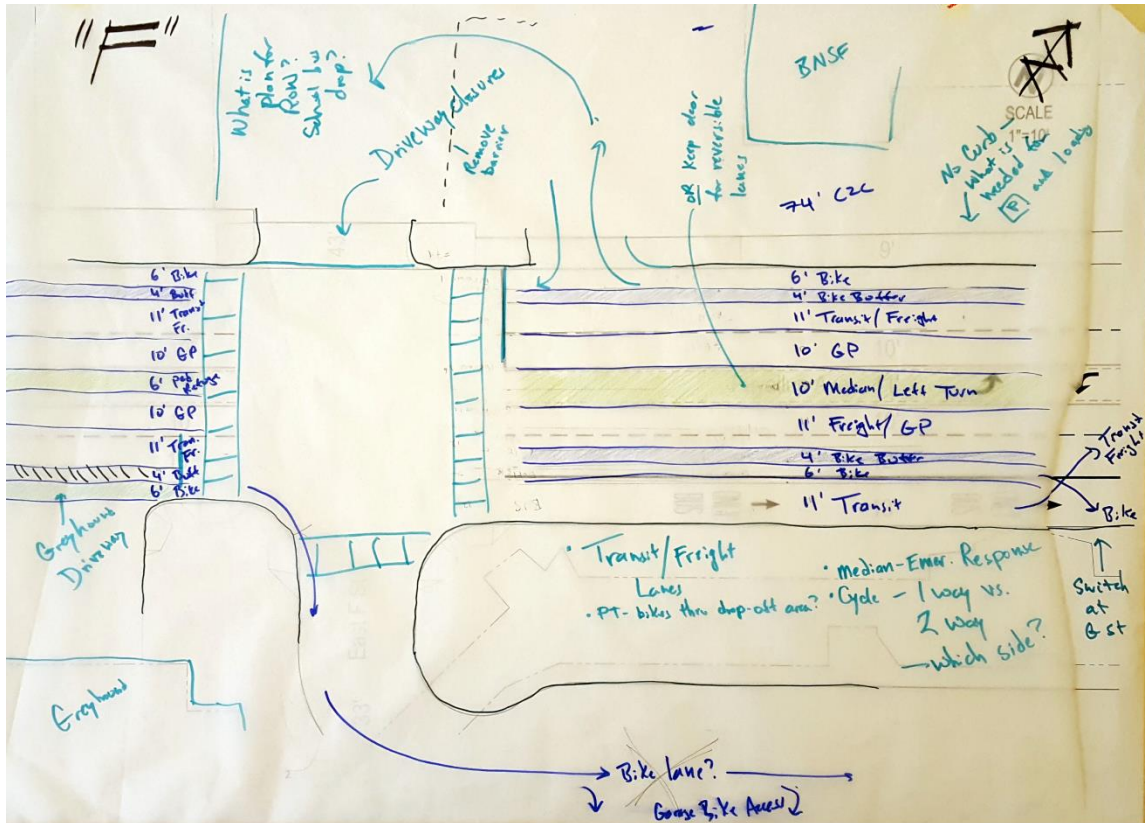 "F"
What is
plan for
ROW?
School bus
drop?
Driveway Closures
Remove
barrier
OR Keep door
for reversible
lanes
BNSF
SCALE
1"=10'
No Curb -
what is
needed for
P and loading
74' C2C
9'
6' Bike
4' Buff
11' Transit
Fr.
10' GP
6' Ped
Refuge
10' GP
11' Tran.
Fr.
4' Buff
6' Bike
6' Bike
4' Bike Buffer
11' Transit/Freight
10' GP
10'
10' Median/Left Turn
11' Freight/GP
4' Bike Buffer
6' Bike
11' Transit
Transit
Freight
Bike
Switch
at
G st
Greyhound
Driveway
Greyhound
• Transit/Freight
Lanes
• PT- bikes thru drop-off area?
• Median-Emer. Response
• Cycle - 1 way vs.
2 way
→ which side?
East F St
33'
Bike lane?
Garage Bike Access